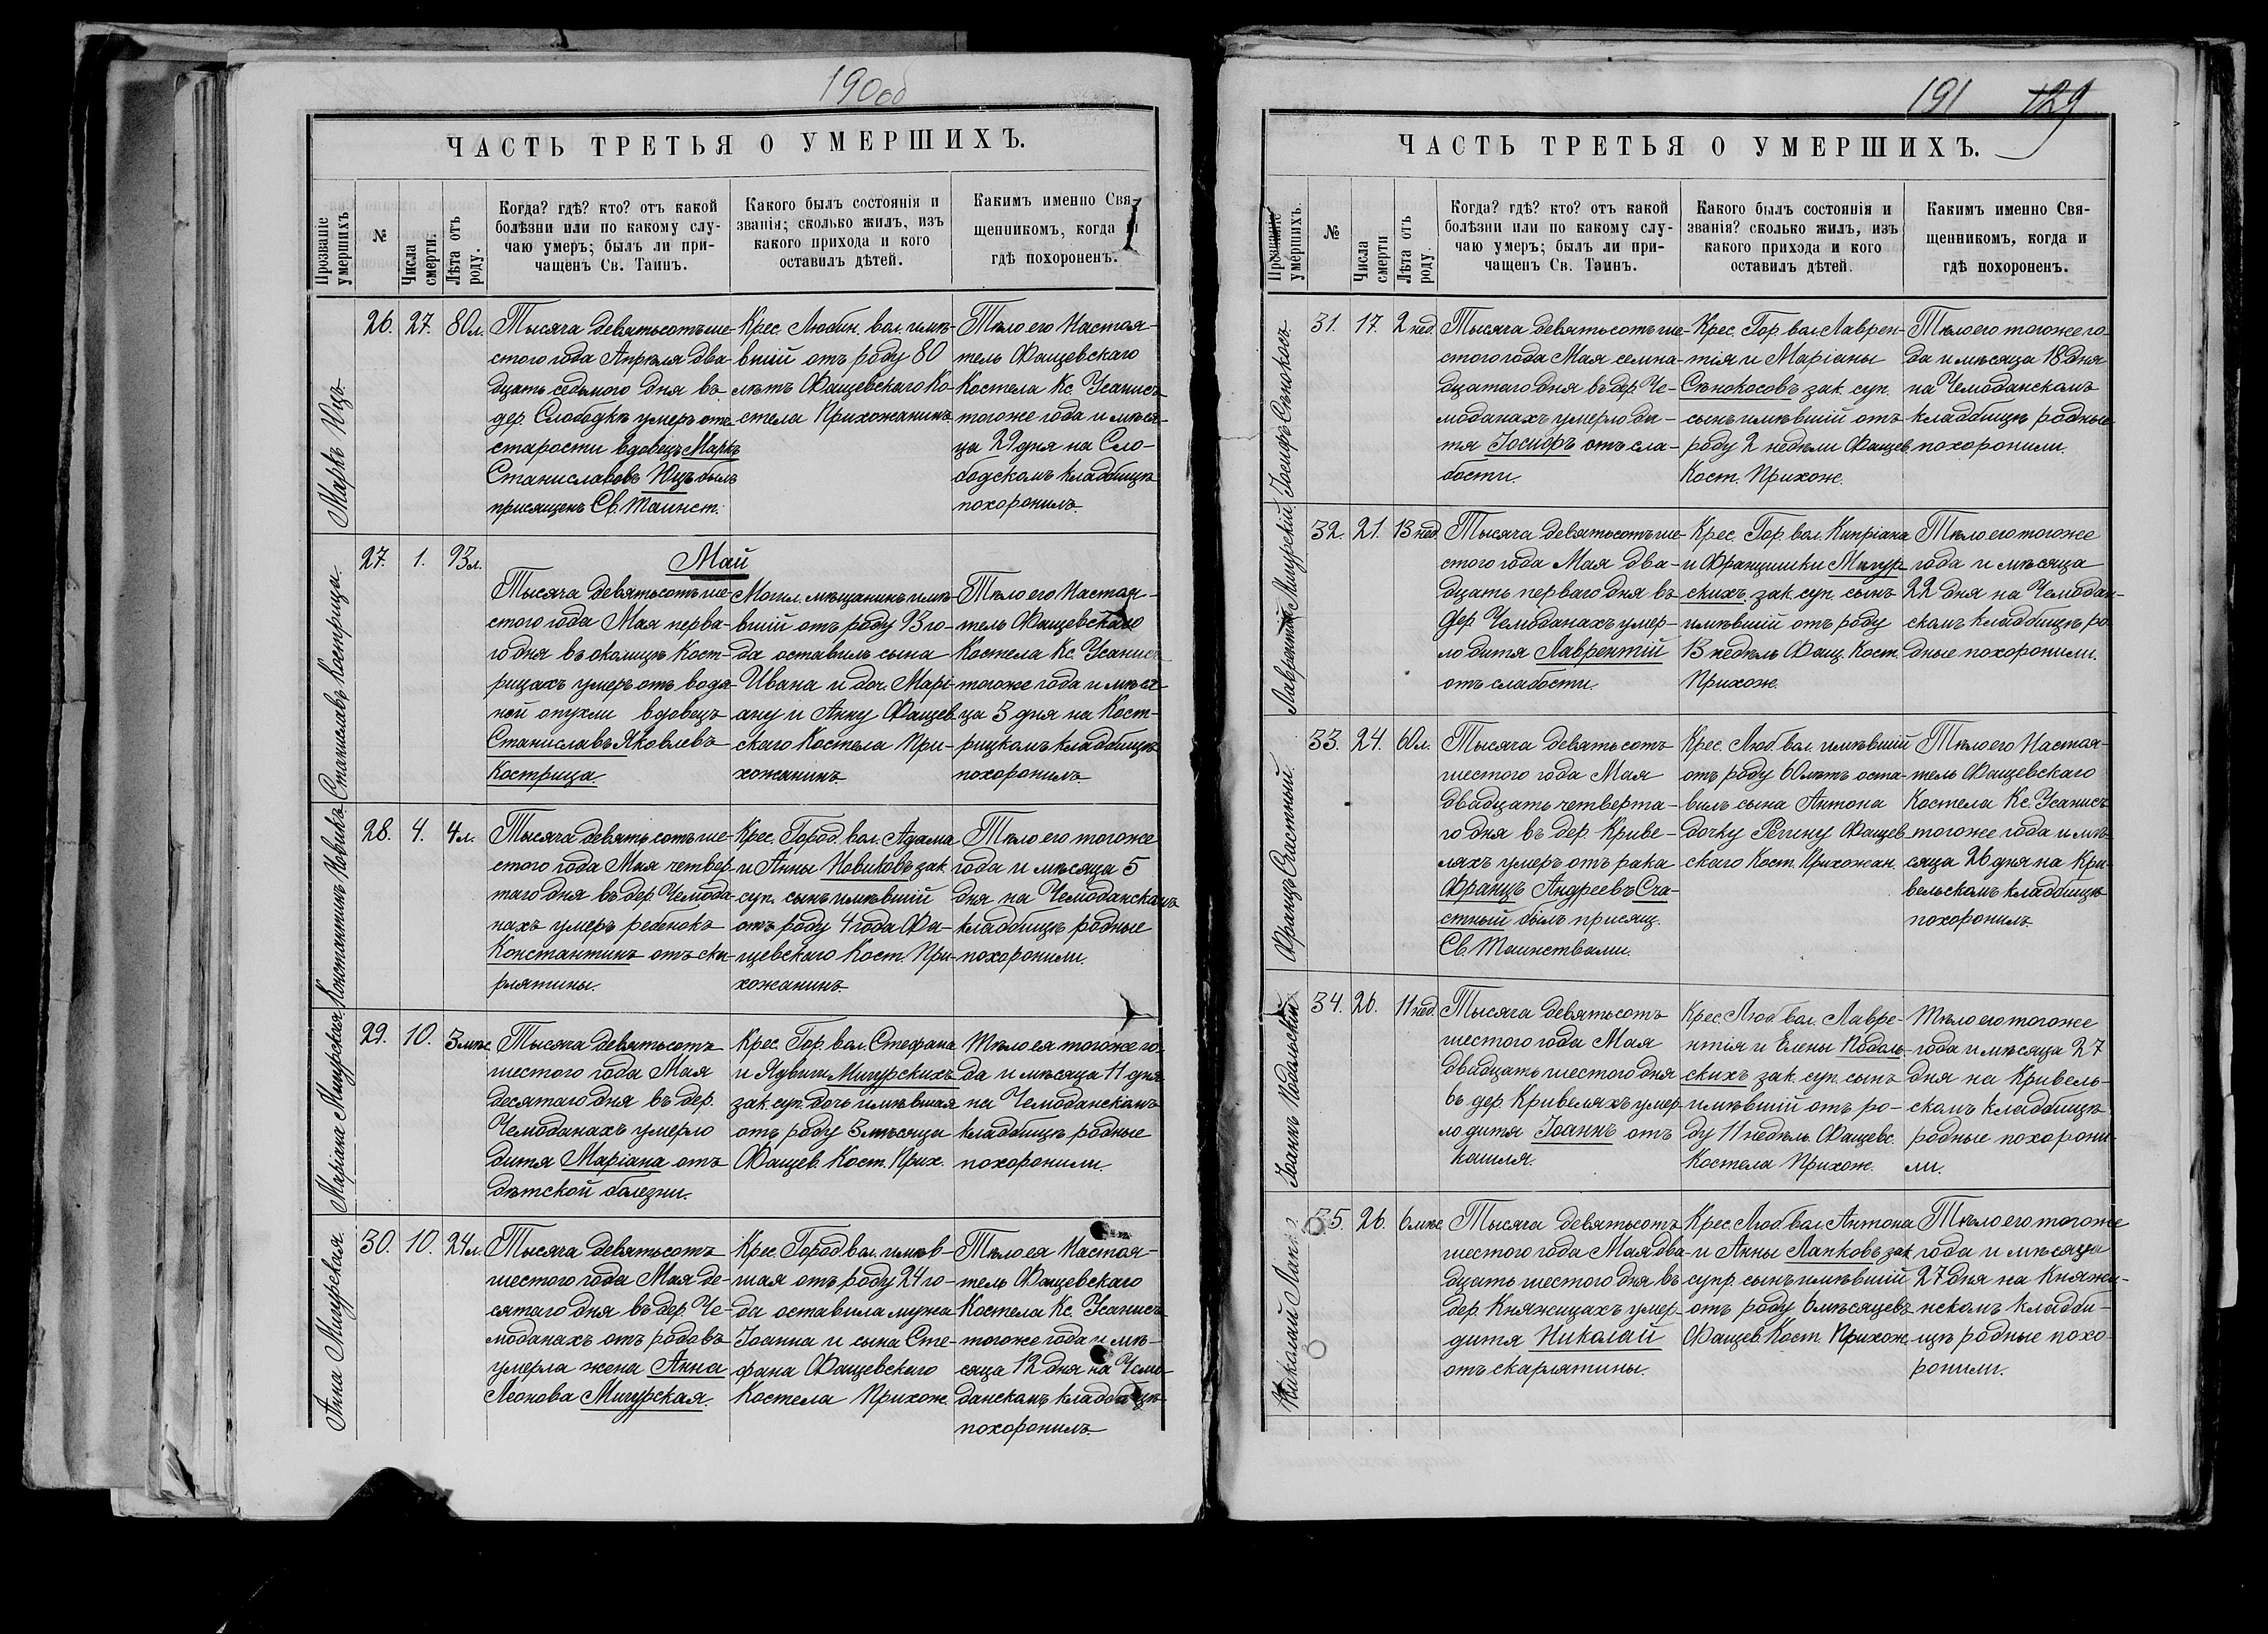 190 об
ЧАСТЬ ТРЕТЬЯ О УМЕРШИХЪ.
Прозваніе умершихъ.
№
Числа смерти.
Лѣта отъ роду.
Когда? гдѣ? кто? отъ какой
болѣзни или по какому слу-
чаю умеръ; былъ ли при-
чащенъ Св. Таинъ.
Какого былъ состоянія и
званія; сколько жилъ, изъ
какого прихода и кого
оставилъ дѣтей.
Какимъ именно Свя-
щенникомъ, когда и
гдѣ похороненъ.
Маркъ Юцъ.
26. 27. 80 л.
Тысяча девятьсотъ ше-
стого года Апрѣля два-
дцать седьмого дня въ
дер. Слободкѣ умеръ отъ
старости вдовецъ Маркъ
Станиславовъ Юцъ былъ
присященъ Св. Таинст.
Крес. Любин. вол. имѣ-
вшій отъ роду 80
лѣтъ Фащевскаго Ко-
стела Прихожанинъ.
Тѣло его Настоя-
тель Фащевскаго
Костела Кс. Усанисъ
тогоже года и мѣся-
ца 29 дня на Сло-
бодскомъ кладбищѣ
похоронилъ.
Станиславъ Кострица.
27. 1. 93 л.
Май
Тысяча девятьсотъ ше-
стого года Мая перва-
го дня въ околицѣ Кост-
рицахъ умеръ отъ водя-
ной опухли вдовецъ
Станиславъ Яковлевъ
Кострица.
Могил. мѣщанинъ имѣ-
вшій отъ роду 93 го-
да оставилъ сына
Ивана и доч. Марі-
ану и Анну Фащев-
скаго Костела При-
хожанинъ
Тѣло его Настоя-
тель Фащевскаго
Костела Кс. Усанисъ
тогоже года и мѣся-
ца 3 дня на Кост-
рицкомъ кладбищѣ
похоронилъ.
Константинъ Новикъ.
28. 4. 4 л.
Тысяча девятьсотъ ше-
стого года Мая четвер-
таго дня въ дер. Чемода-
нахъ умеръ ребенокъ
Константинъ отъ ска-
рлятины.
Крес. Город. вол. Адама
и Анны Новиковъ зак.
суп. сынъ имѣвшій
отъ роду 4 года Фа-
щевскаго Кост. При-
хожанинъ.
Тѣло его тогоже
года и мѣсяца 5
дня на Чемоданскомъ
кладбищѣ родные
похоронили.
Маріана Мигурская.
29. 10. 3 мѣс.
Тысяча девятьсотъ
шестого года Мая
десятаго дня въ дер.
Чемоданахъ умерло
дитя Маріана отъ
дѣтской болезни.
Крес. Гор. вол. Стефана
и Ядвиги Мигурскихъ
зак. суп. дочь имѣвшая
отъ роду 3 мѣсяца
Фащев. Кост. Прих.
Тѣло ея тогоже го-
да и мѣсяца 11 дня
на Чемоданскомъ
кладбищѣ родные
похоронили.
Анна Мигурская.
30. 10. 24 л.
Тысяча девятьсотъ
шестого года Мая де-
сятаго дня въ дер. Че-
моданахъ отъ родовъ
умерла жена Анна
Леонова Мигурская.
Крес. Город. вол. имѣв-
шая отъ роду 24 го-
да оставила мужа
Іоанна и сына Сте-
фана Фащевскаго
Костела Прихож.
Тѣло ея Настоя-
тель Фащевскаго
Костела Кс. Усанисъ
тогоже года и мѣ-
сяца 12 дня на Чемо-
данскомъ кладбищѣ
похоронилъ.
191 129
ЧАСТЬ ТРЕТЬЯ О УМЕРШИХЪ.
Прозваніе умершихъ.
№
Числа смерти
Лѣта отъ роду.
Когда? гдѣ? кто? отъ какой
болѣзни или по какому слу-
чаю умеръ; былъ ли при-
чащенъ Св. Таинъ.
Какого былъ состоянія и
званія? сколько жилъ, изъ
какого прихода и кого
оставилъ дѣтей.
Какимъ именно Свя-
щенникомъ, когда и
гдѣ похороненъ.
Іосифъ Сѣнокосъ.
31. 17. 2 нед.
Тысяча девятьсотъ ше-
стого года Мая семна-
дцатаго дня въ дер. Че-
моданахъ умерло ди-
тя Іосифъ отъ сла-
бости.
Крес. Гор. вол. Лаврен-
тія и Маріаны
Сѣнокосовъ зак. суп.
сынъ имѣвшій отъ
роду 2 недѣли Фащев.
Кост. Прихож.
Тѣло его тогоже го-
да и мѣсяца 18 дня
на Чемоданскомъ
кладбищѣ родные
похоронили.
Лаврентій Мигурскій
32. 21. 13 нед.
Тысяча девятьсотъ ше-
стого года Мая два-
дцать перваго дня въ
дер. Чемоданахъ умер-
ло дитя Лаврентій
отъ слабости.
Крес. Гор. вол. Кипріана
и Францишки Мигур-
скихъ зак. суп. сынъ
имѣвшій отъ роду
13 недѣль Фащ. Кост.
Прихож.
Тѣло его тогоже
года и мѣсяца
22 дня на Чемодан-
скомъ кладбищѣ ро-
дные похоронили.
Францъ Счастный.
33. 24. 60 л.
Тысяча девятьсотъ
шестого года Мая
двадцать четверта-
го дня въ дер. Криве-
ляхъ умеръ отъ рака
Францъ Андреевъ Сча-
стный былъ присящ.
Св. Таинствами.
Крес. Люб. вол. имѣвшій
отъ роду 60 лѣтъ оста-
вилъ сына Антона
дочку Регину Фащев-
скаго Кост. Прихожан.
Тѣло его Настоя-
тель Фащевскаго
Костела Кс. Усанисъ
тогоже года и мѣ-
сяца 26 дня на Кри-
вельскомъ кладбищѣ
похоронилъ.
Іоаннъ Подольскій.
34. 26. 11 нед.
Тысяча девятьсотъ
шестого года Мая
двадцать шестого дня
въ дер. Кривеляхъ умер-
ло дитя Іоаннъ отъ
кашля.
Крес. Люб. вол. Лавре-
нтія и Елены Подоль-
скихъ зак. суп. сынъ
имѣвшій отъ ро-
ду 11 недѣль Фащевс.
Костела Прихож.
Тѣло его тогоже
года и мѣсяца 27
дня на Кривель-
скомъ кладбищѣ
родные похорони-
ли.
Николай
35. 26. 6 мѣс.
Тысяча девятьсотъ
шестого года Мая два-
дцать шестого дня въ
дер. Княжицахъ умер-
дитя Николай
отъ скарлятины.
Крес. Люб. вол. Антона
и Анны Лапковъ зак.
супр. сынъ имѣвшій
отъ роду 6 мѣсяцевъ
Фащев. Кост. Прихож.
Тѣло его тогоже
года и мѣсяца
27 дня на Княжи-
нскомъ кладби-
щѣ родные похо-
ронили.